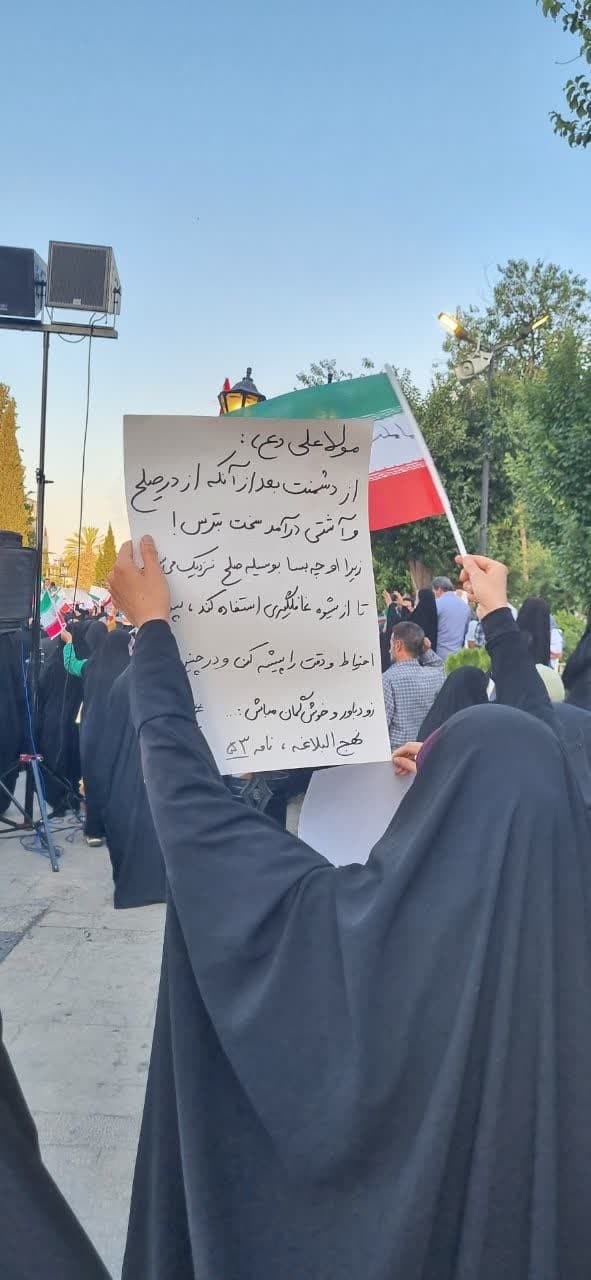 مولا علی (ع):
از دشمنت بعد از آنکه از در صلح
و آشتی درآمد سخت بترس!
زیرا او چه بسا بوسیله صلح نزدیک می‌
تا از شیوه غافلگیری استفاده کند،
احتیاط و دقت را پیشه کن و در
زودباور و خوش گمان مباش:...
نهج البلاغه، نامه ۵۳